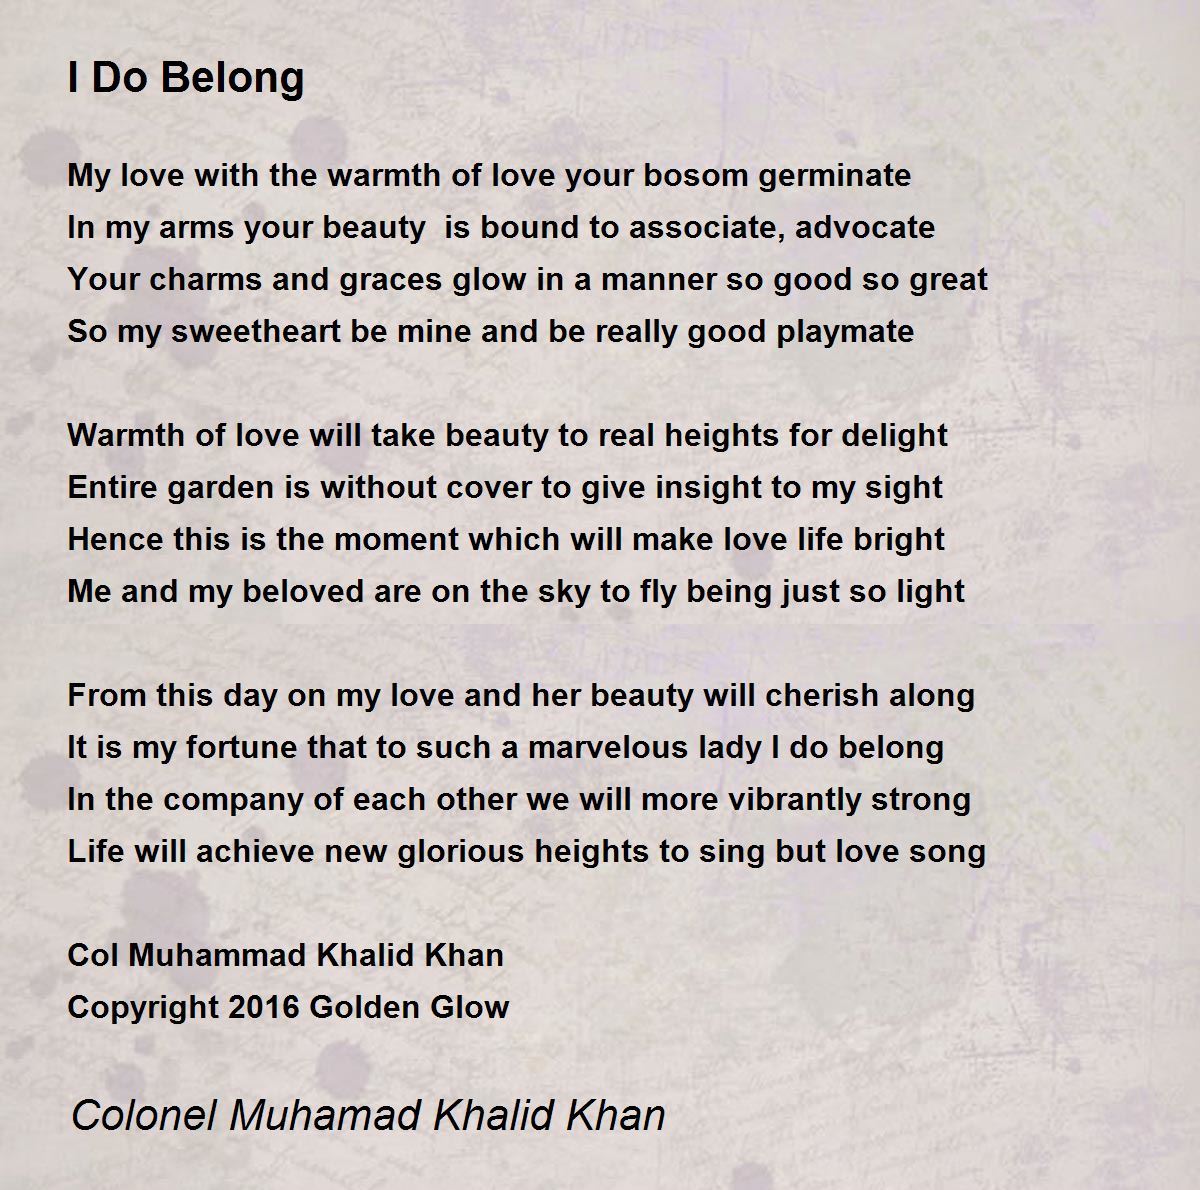 I Do Belong
My love with the warmth of love your bosom germinate
In my arms your beauty  is bound to associate, advocate
Your charms and graces glow in a manner so good so great
So my sweetheart be mine and be really good playmate
Warmth of love will take beauty to real heights for delight
Entire garden is without cover to give insight to my sight
Hence this is the moment which will make love life bright
Me and my beloved are on the sky to fly being just so light
From this day on my love and her beauty will cherish along
It is my fortune that to such a marvelous lady I do belong
In the company of each other we will more vibrantly strong
Life will achieve new glorious heights to sing but love song
Col Muhammad Khalid Khan
Copyright 2016 Golden Glow
Colonel Muhamad Khalid Khan